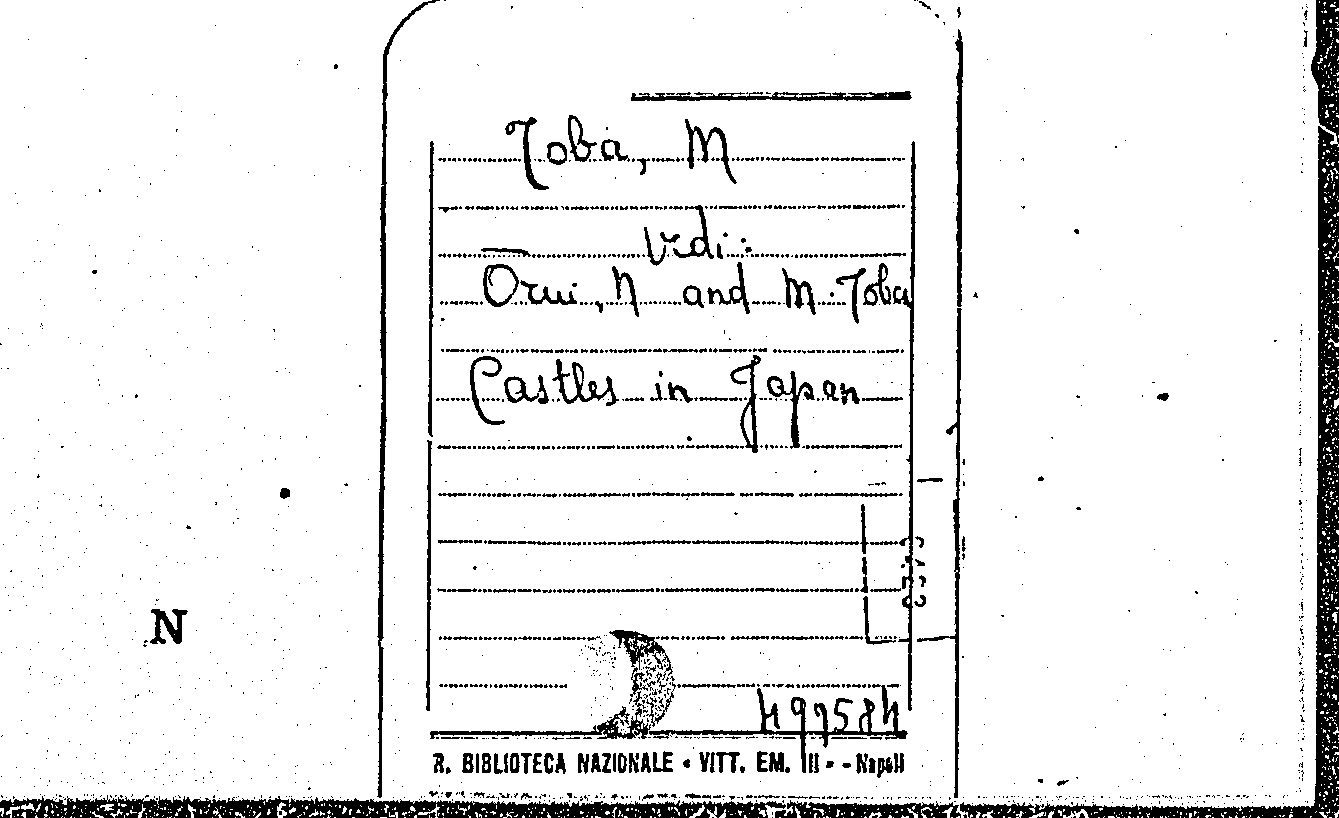 Toba, M
Vedi:
Ōrui, N and M. Toba
Castles in Japan
N
499584
R. BIBLIOTECA NAZIONALE • VITT. EM. III - - Napoli